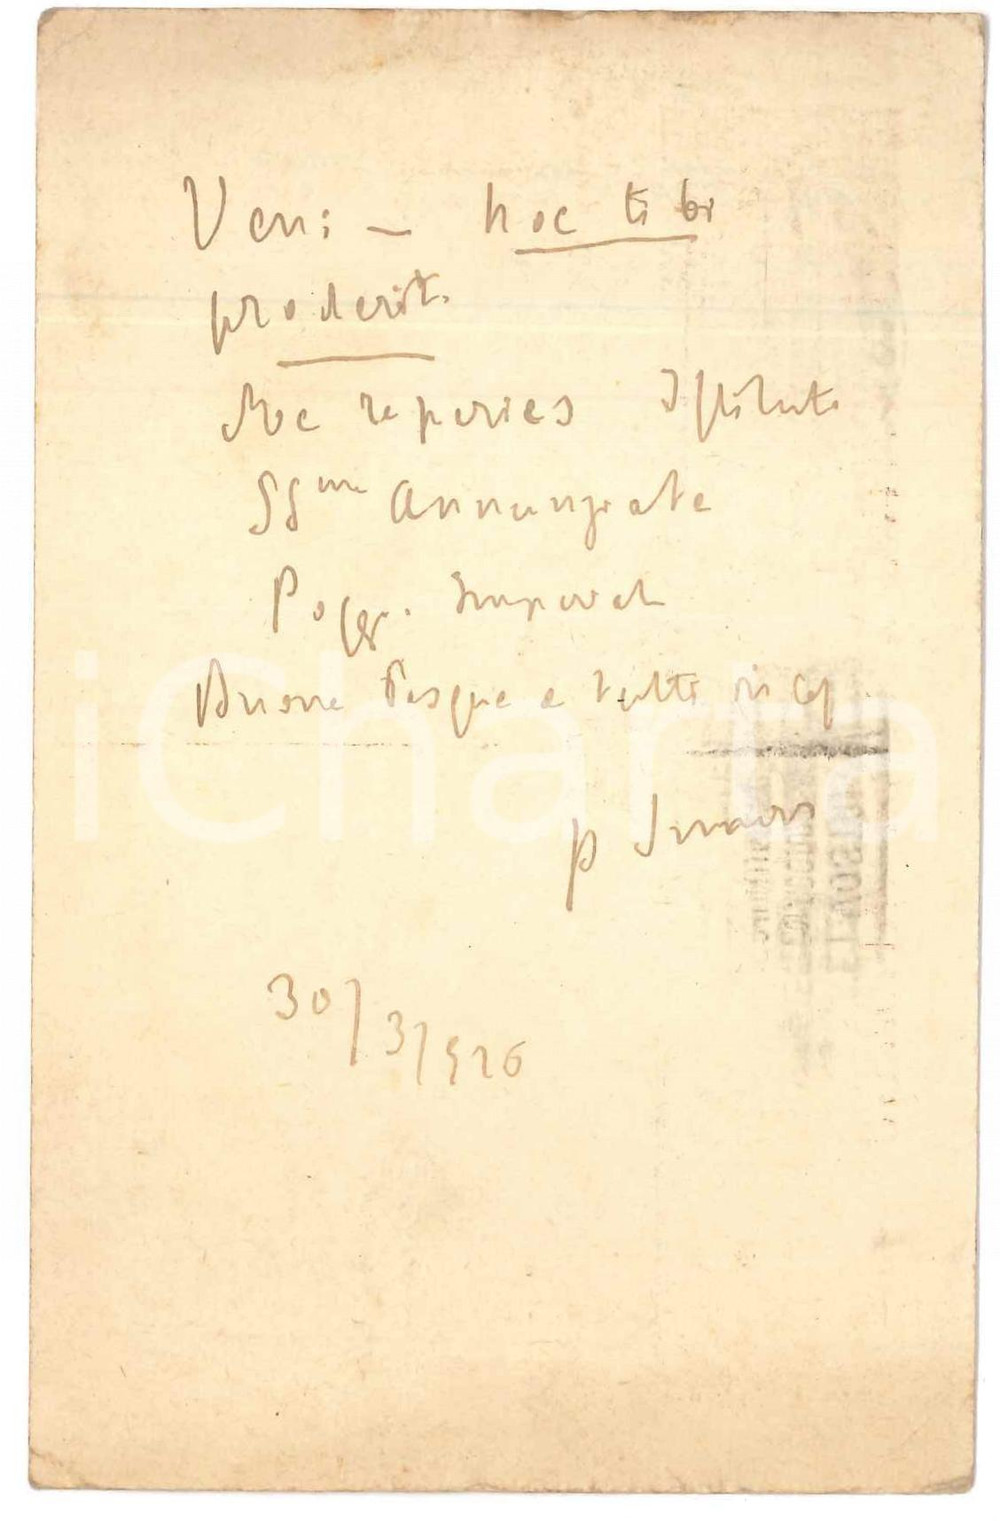 Veni – hoc tibi
proderit.
Me reperies Istituto
SSma Annunziata
Poggi. Imperiale
Buone Pasque a tutti
p
30/3/926
iCharta